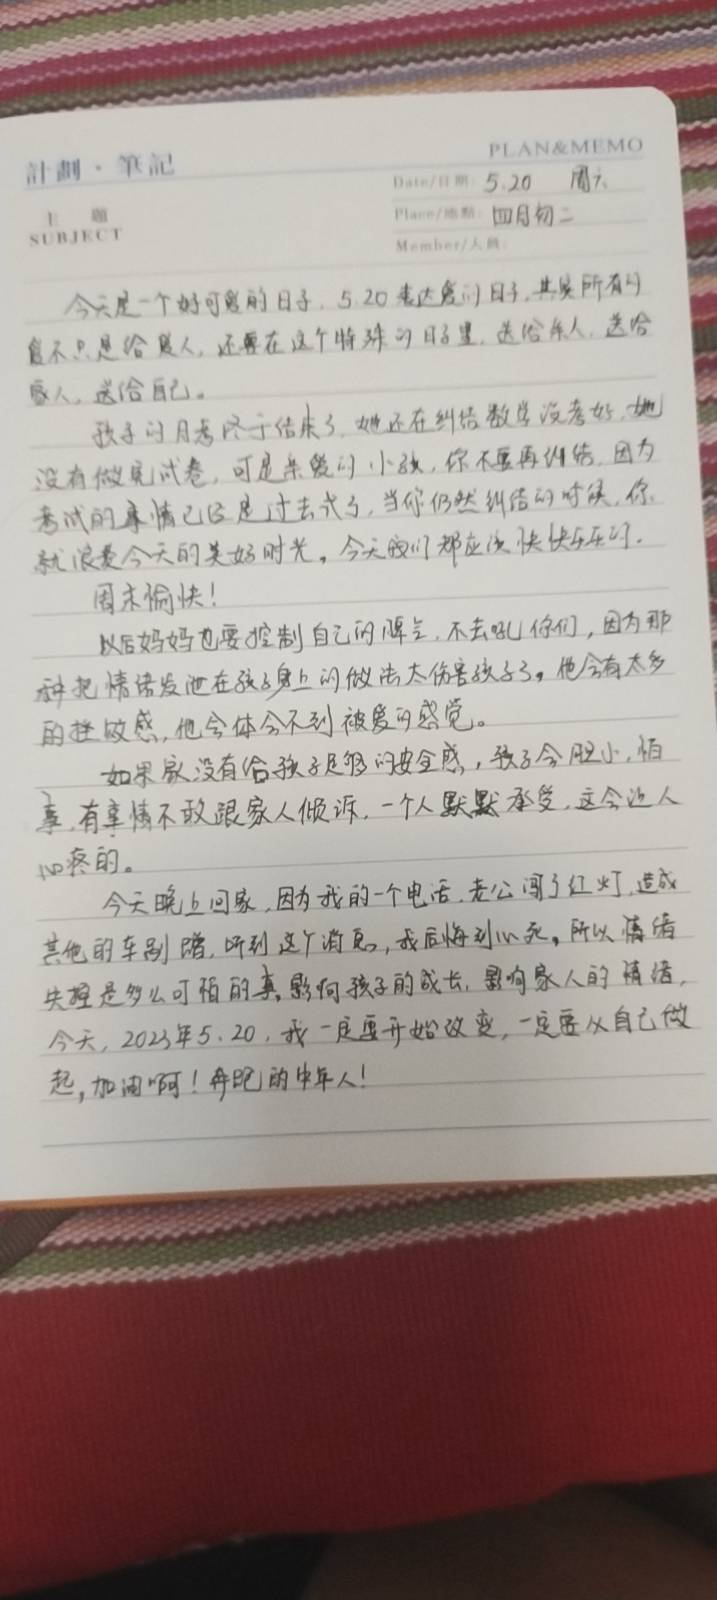 計劃·筆記
PLAN&MEMO
Date/日期: 5.20 周六
主題
SUBJECT
Place/地點: 四月初二
Member/人員:
今天是一个好可爱的日子，5.20表达爱的日子，其实所有的
爱不只是给爱人，还要在这个特殊的日子里，送给亲人，送给
家人，送给自己。
孩子的月考终于结束了，她还在纠结数学没考好，她
没有做完试卷，可是亲爱的小孩，你不要再纠结，因为
考试的事情已经是过去式了，当你仍然纠结的时候，你
就浪费今天的美好时光。今天我们都应该快快乐乐的，
周末愉快！
以后妈妈也要控制自己的脾气，不去吼你们，因为那
种把情绪发泄在孩子身上的做法太伤害孩子了。他会有太多
的挫败感，他会体会不到被爱的感觉。
如果家没有给孩子足够的安全感，孩子会胆小，怕
事，有事情不敢跟家人倾诉，一个人默默承受，这会让人
心疼的。
今天晚上回家，因为我的一个电话，老公闯了红灯，造成
其他的车剐蹭，听到这个消息，我后悔到心死。所以情绪
失控是多么可怕的事。影响孩子的成长，影响家人的情绪，
今天，2023年5.20，我一定要开始改变，一定要从自己做
起，加油啊！奔跑的中年人！